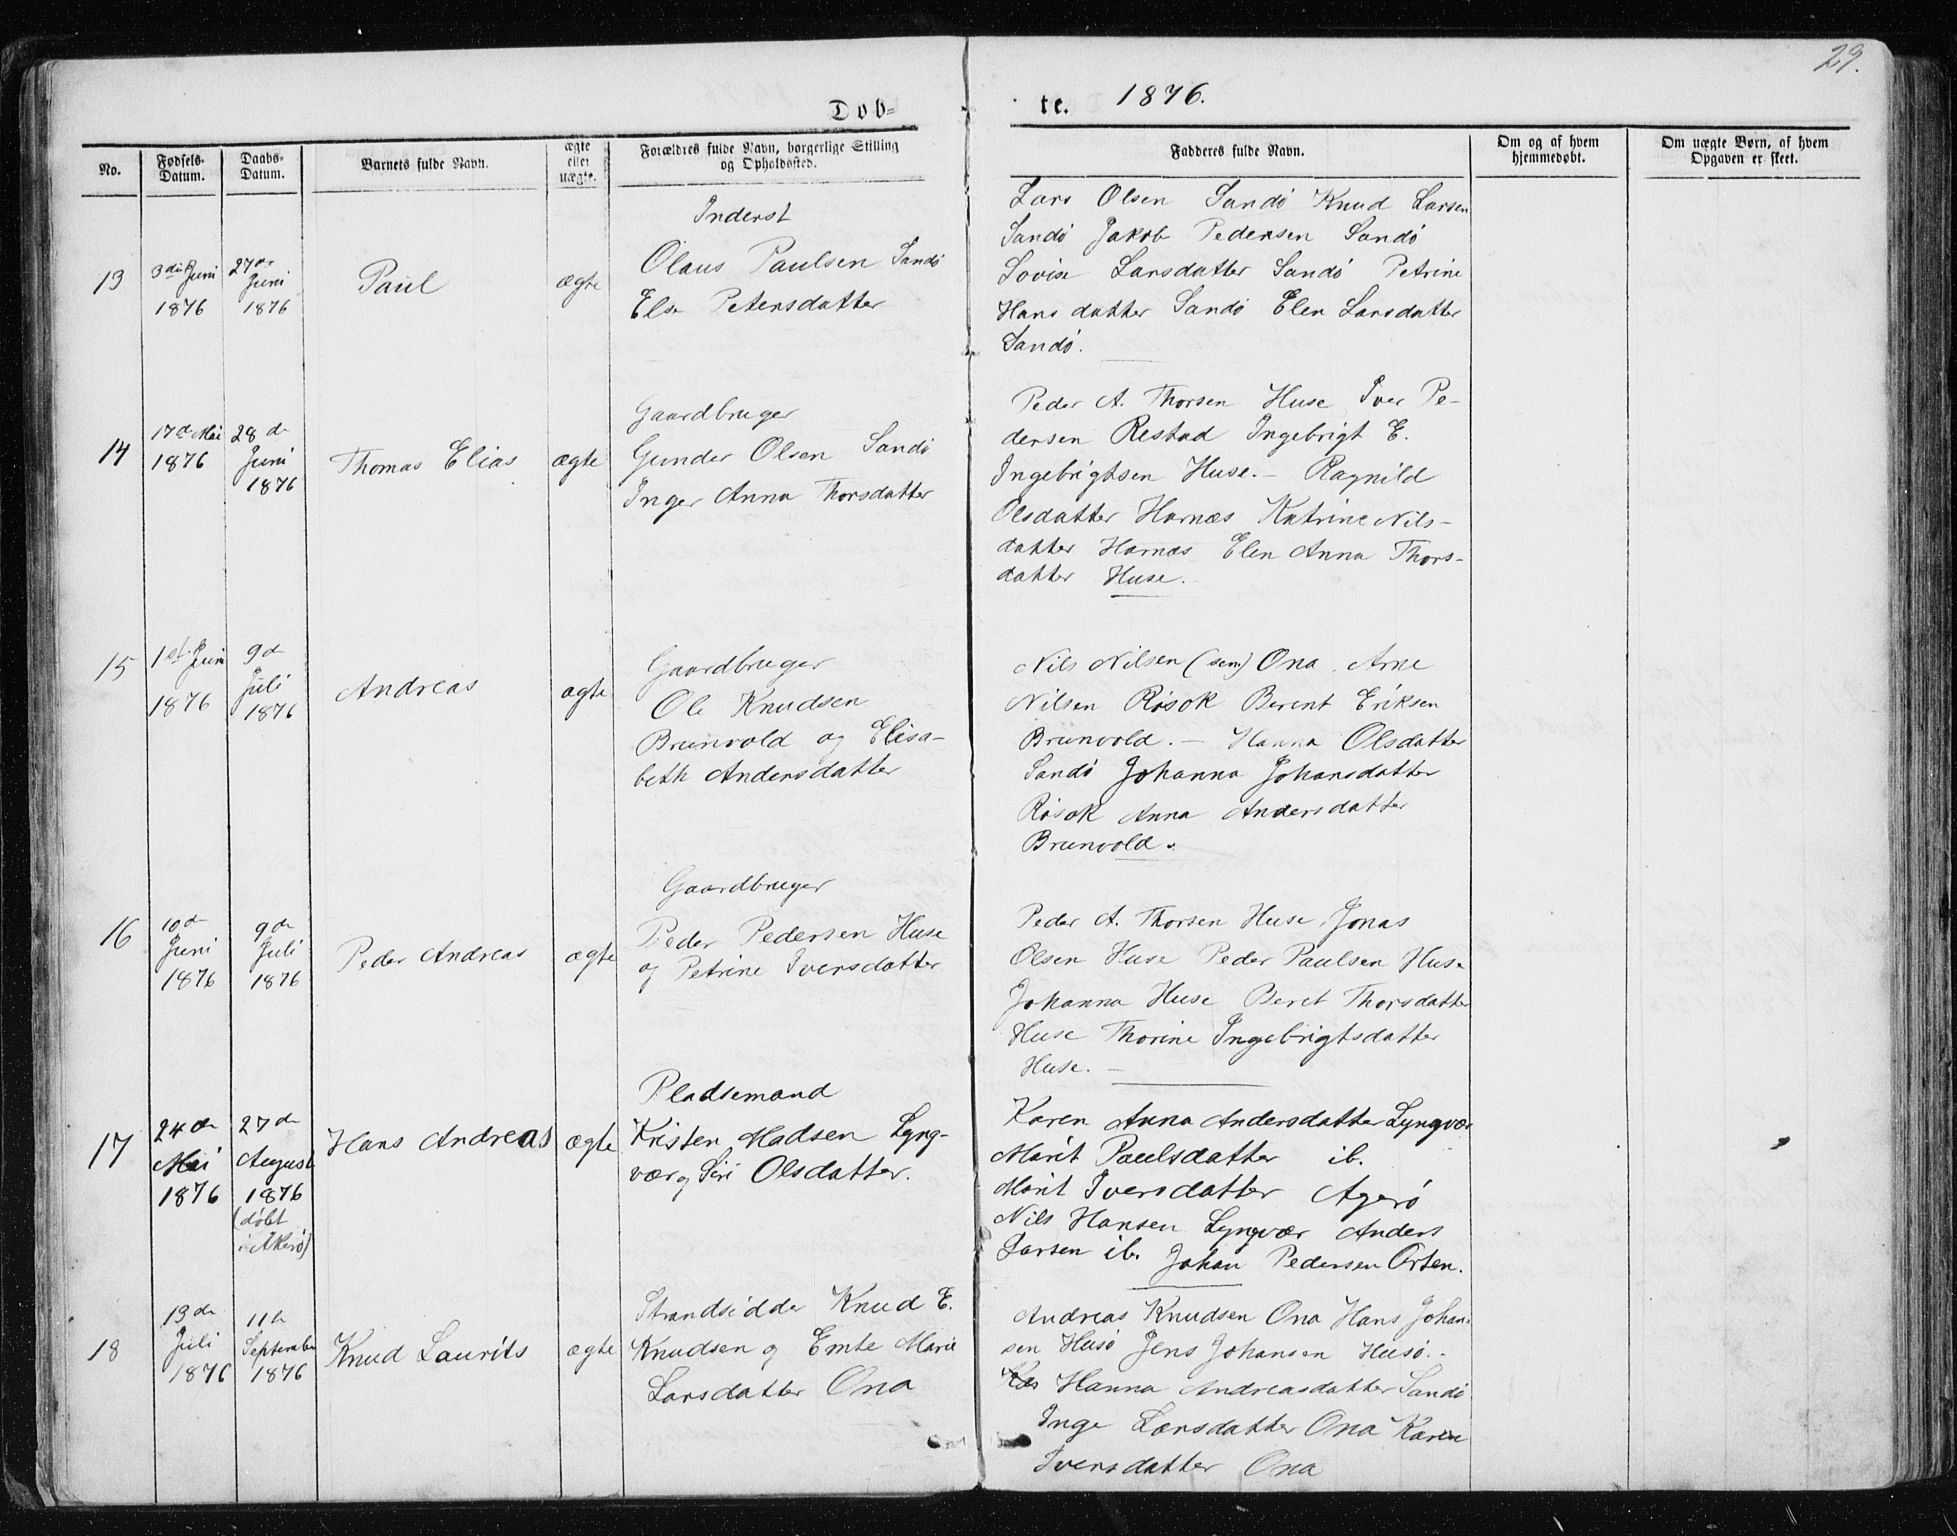 29.
Døb=
te. 1876.
No.
Fødsels-
Datum.
Daabs-
Datum.
Barnets fulde Navn.
ægte
eller
uægte.
Forældres fulde Navn, borgerlige Stilling
og Opholdssted.
Fadderes fulde Navn.
Om og af hvem
hjemmedøbt.
Om uægte Børn, af hvem
Opgaven er skeet.
13
3die Juni
1876
27de
Juni
1876
Paul
ægte
Inderst
Olaus Paulsen Sandø
Else Petersdatter
Lars Olsen Sandø Knud Larsen
Sandø Jakob Pedersen Sandø
Lovise Larsdatter Sandø Petrine
Hansdatter Sandø Elen Larsdatter
Sandø.
14
17de Mai
1876
28de
Juni
1876
Thomas Elias
ægte
Gaardbruger
Gunder Olsen Sandø
Inger Anna Thorsdatter
Peder A. Thorsen Huse Iver Pe-
dersen Restad Ingebrigt E.
Ingebrigtsen Huse. – Ragnild
Olsdatter Harnæs Katrine Nils-
datter Harnæs Elen Anna Thors-
datter Huse.
15
1st Juni
1876
9de
Juli
1876
Andreas
ægte
Gaardbruger
Ole Knudsen
Brunvold og Elisa-
beth Andersdatter
Nils Nilsen (sen.) Ona. Arne
Nilsen Røsok Berent Eriksen
Brunvold. – Hanna Olsdatter
Sandø Johanna Johansdatter
Røsok Anna Andersdatter
Brunvold.
16
10de
Juni
1876
9de
Juli
1876
Peder Andreas
ægte
Gaardbruger
Peder Pedersen Huse
og Petrine Iversdatter
Peder A. Thorsen Huse Jonas
Olsen Huse Peder Paulsen Huse
Johanna Huse Beret Thorsdatter
Huse Thorine Ingebrigtsdatter
Huse. –
17
24de
Mai
1876
27de
August
1876
(døbt
i Akerø)
Hans Andreas
ægte
Pladsemand
Kristen Madsen Lyng-
vær og Siri Olsdatter.
Karen Anna Andersdatter Lyngvær
Marit Paulsdatter ib.
Marit Iversdatter Agerø
Nils Hansen Lyngvær Anders
Larsen ib. Johan Pedersen Orten.
18
13de
Juli
1876
11te
September
1876
Knud Laurits
ægte
Strandsidder Knud E.
Knudsen og Emte Marie
Larsdatter Ona
Andreas Knudsen Ona Hans Johan-
sen Husø Jens Johansen Husø. –
Hanna Andreasdatter Sandø
Inge Larsdatter Ona Karen
Iversdatter Ona